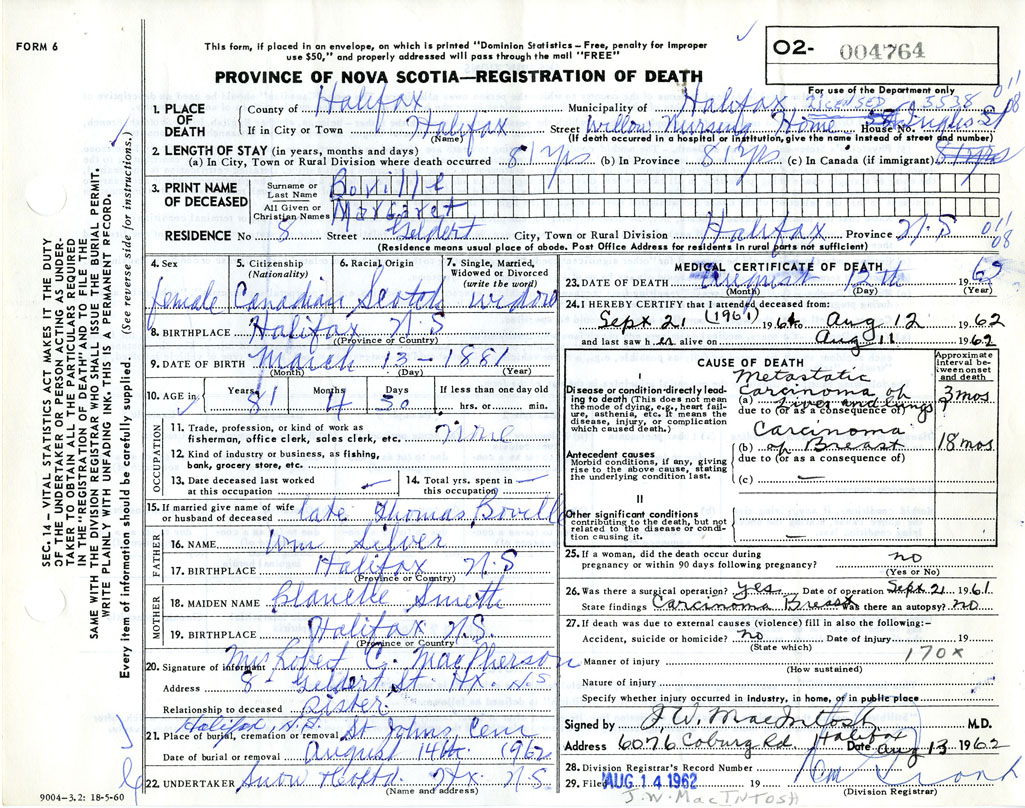 FORM 6
This form, if placed in an envelope, on which is printed "Dominion Statistics – Free, penalty for improper
use $50," and properly addressed will pass through the mail "FREE"
O2- 004764
PROVINCE OF NOVA SCOTIA—REGISTRATION OF DEATH
For use of the Department only
1. PLACE OF DEATH County of Halifax Municipality of Halifax LICENSED 3538 01'08
If in City or Town Halifax (Name) Street Willow Nursing Home House No.
(If death occurred in a hospital or institution, give its name instead of street and number)
2. LENGTH OF STAY (in years, months and days)
(a) In City, Town or Rural Division where death occurred 81 yrs (b) In Province 81 yrs (c) In Canada (if immigrant) 81 yrs
3. PRINT NAME OF DECEASED
Surname or Last Name Boville
All Given or Christian Names Margaret
RESIDENCE No 8 Street Geldert City, Town or Rural Division Halifax Province N.S 01'08
(Residence means usual place of abode. Post Office Address for residents in rural parts not sufficient)
4. Sex female
5. Citizenship (Nationality) Canadian
6. Racial Origin Scotch
7. Single, Married, Widowed or Divorced (write the word) widow
8. BIRTHPLACE Halifax N S
(Province or Country)
9. DATE OF BIRTH March 13 - 1881
(Month) (Day) (Year)
10. AGE in Years 81 Months 4 Days 30 If less than one day old
hrs. or min.
OCCUPATION
11. Trade, profession, or kind of work as
fisherman, office clerk, sales clerk, etc. none
12. Kind of industry or business, as fishing,
bank, grocery store, etc.
13. Date deceased last worked
at this occupation —
14. Total yrs. spent in
this occupation —
15. If married give name of wife
or husband of deceased late Thomas Boville
FATHER
16. NAME Wm Silver
17. BIRTHPLACE Halifax N.S
(Province or Country)
MOTHER
18. MAIDEN NAME Smith
19. BIRTHPLACE Halifax N.S.
(Province or Country)
20. Signature of informant Mrs Robert C. MacPherson
Address 8 - Geldert St. Hx. N.S
Relationship to deceased Sister
Halifax, N.S.
21. Place of burial, cremation or removal St Johns Cem
Date of burial or removal August 14th 1962
22. UNDERTAKER Snow Hx. N.S.
(Name and address)
9004–3.2: 18-5-60
MEDICAL CERTIFICATE OF DEATH
23. DATE OF DEATH August 12th 1962
(Month) (Day) (Year)
24. I HEREBY CERTIFY that I attended deceased from:
Sept 21 (1961) 1961 to Aug 12 1962
and last saw h er alive on Aug 11 1962
CAUSE OF DEATH
Approximate interval between onset and death
I
Disease or condition directly leading to death (This does not mean
the mode of dying, e.g., heart failure, asthenia, etc. It means the
disease, injury, or complication
which caused death.)
Metastatic
(a) Carcinoma of
liver and lungs 3 mos
due to (or as a consequence of)
Antecedent causes
Morbid conditions, if any, giving
rise to the above cause, stating
the underlying condition last.
Carcinoma
(b) of Breast 18 mos
due to (or as a consequence of)
(c) —
II
Other significant conditions
contributing to the death, but not
related to the disease or condition causing it. —
25. If a woman, did the death occur during
pregnancy or within 90 days following pregnancy? no
(Yes or No)
26. Was there a surgical operation? yes Date of operation Sept 21 1961
State findings Carcinoma Breast Was there an autopsy? no
27. If death was due to external causes (violence) fill in also the following:–
Accident, suicide or homicide? no Date of injury 19
(State which)
Manner of injury 170x
(How sustained)
Nature of injury
Specify whether injury occurred in industry, in home, or in public place
Signed by J.W. MacIntosh M.D.
Address 6076 Coburg Rd Halifax Date Aug 13 1962
28. Division Registrar's Record Number
29. Filed AUG 14 1962 19
(Division Registrar)
J.W. MacINTOSH
SEC. 14 – VITAL STATISTICS ACT MAKES IT THE DUTY
OF THE UNDERTAKER OR PERSON ACTING AS UNDER-
TAKER TO OBTAIN ALL THE PARTICULARS REQUIRED
IN THE "REGISTRATION OF DEATH" AND TO FILE THE
SAME WITH THE DIVISION REGISTRAR WHO SHALL ISSUE THE BURIAL PERMIT.
WRITE PLAINLY WITH UNFADING INK. THIS IS A PERMANENT RECORD.
Every item of information should be carefully supplied. (See reverse side for instructions.)